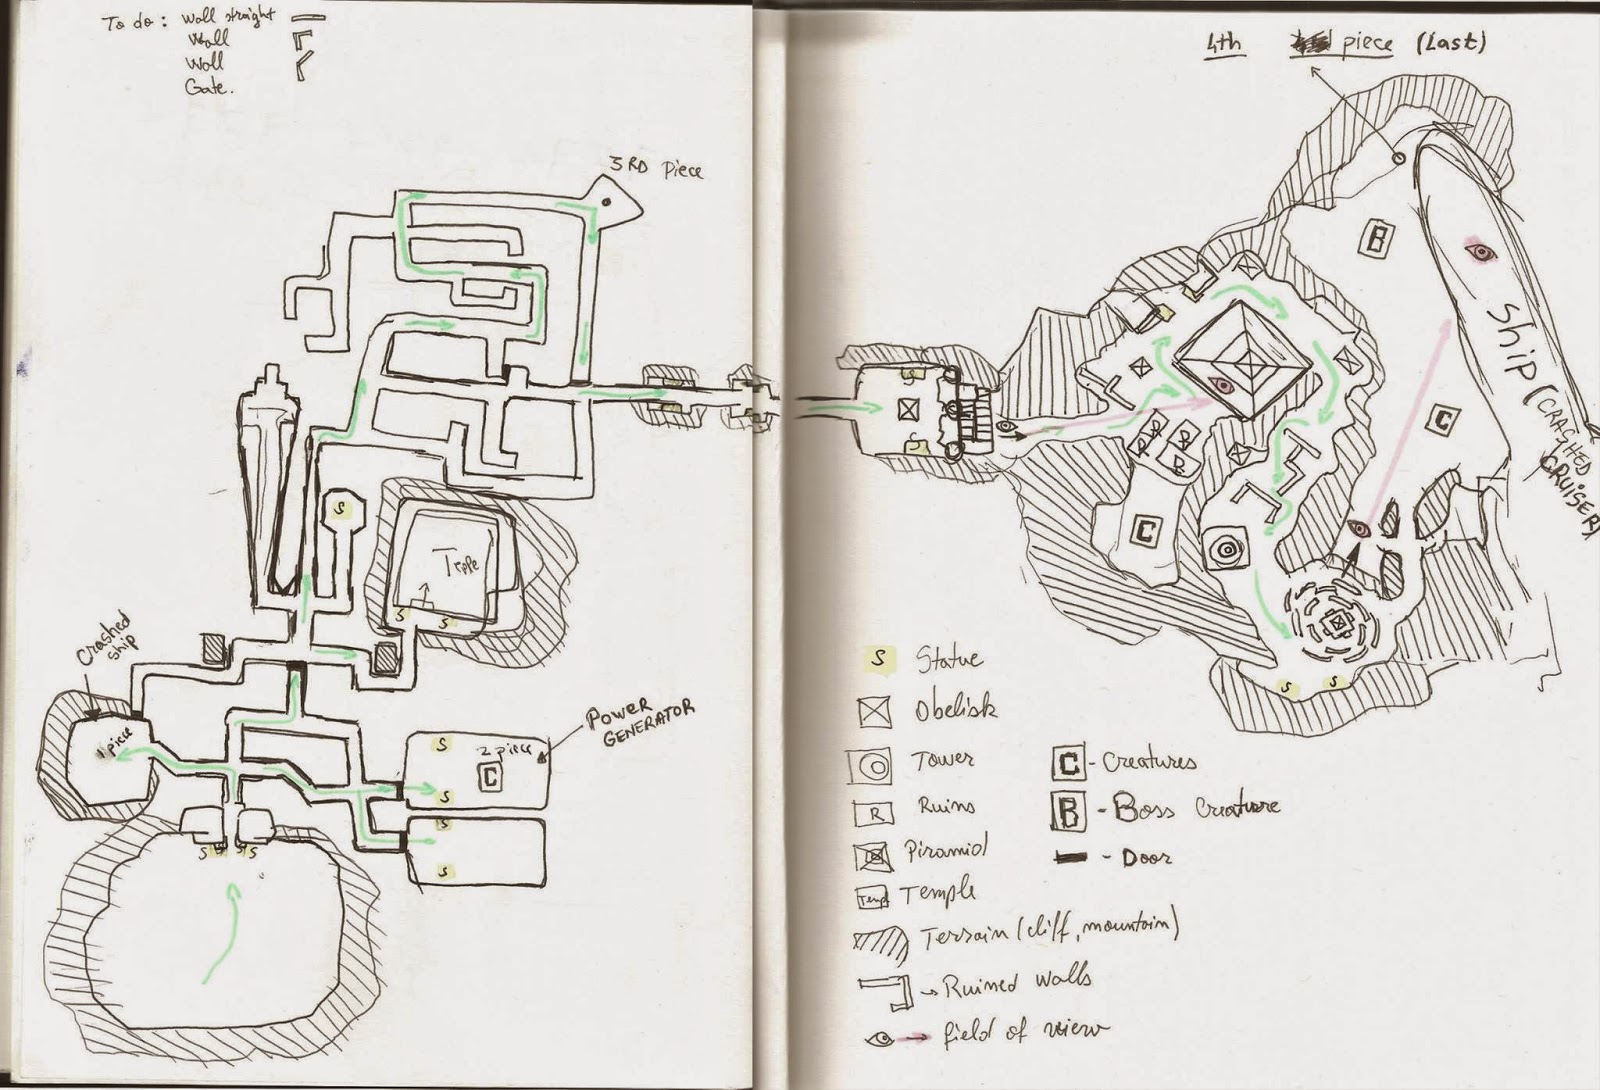 To do : Wall straight
Wall
Wall
Gate.
3RD Piece
S
Temple
S
S
Crashed
ship
1 piece
POWER
GENERATOR
S
2 piece
C
S
S
S
S
S
S
4th piece (Last)
B
Ship (CRASHED
CRUISER)
C
S
S
R
R
R
R
C
S
S
S Statue
Obelisk
Tower
R Ruins
Piramid
Temp Temple
Terrain (cliff, mountain)
→ Ruined walls
→ field of view
C - Creatures
B - Boss Creature
- Door